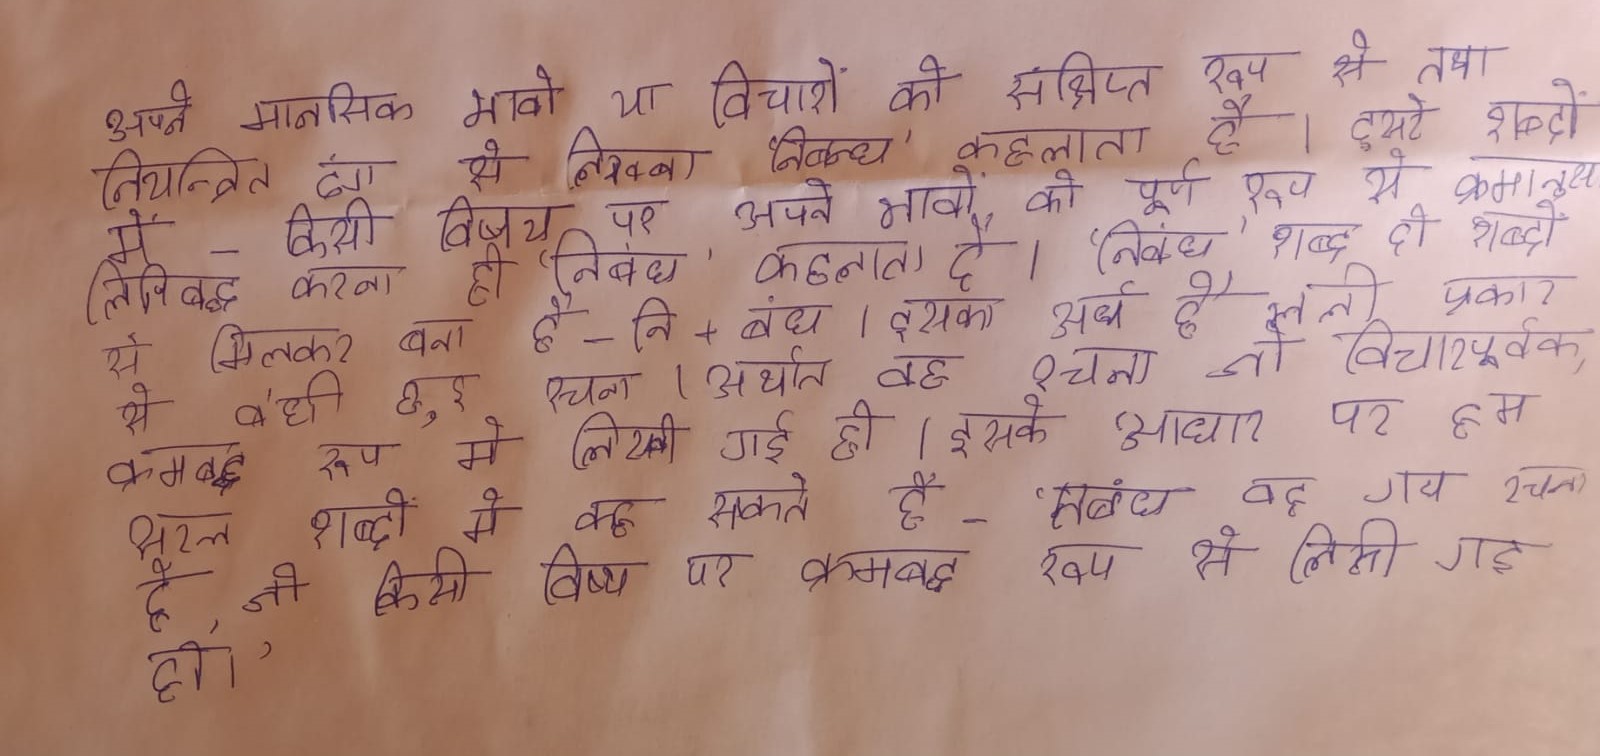 अपने मानसिक भावो या विचारों को संक्षिप्त रूप से तथा
नियन्त्रित ढंग से लिखना 'निबन्ध' कहलाता है । दुसरे शब्दों
में - किसी विषय पर अपने भावों को पूर्ण रूप से क्रमानुसा
लिपिबद्ध करना ही 'निबंध' कहलाता है । 'निबंध' शब्द दो शब्दों
से मिलकर बना है - नि + बंध । इसका अर्थ है भली प्रकार
से बंधी हुई रचना । अर्थात वह रचना जो विचारपूर्वक,
क्रमबद्ध रूप मे लिखी गई हो । इसके आधार पर हम
सरल शब्दों मे कह सकते है - 'निबंध वह गय रचना
है, जो किसी विष्य पर क्रमबद्ध रूप से लिखी गइ
हो।'